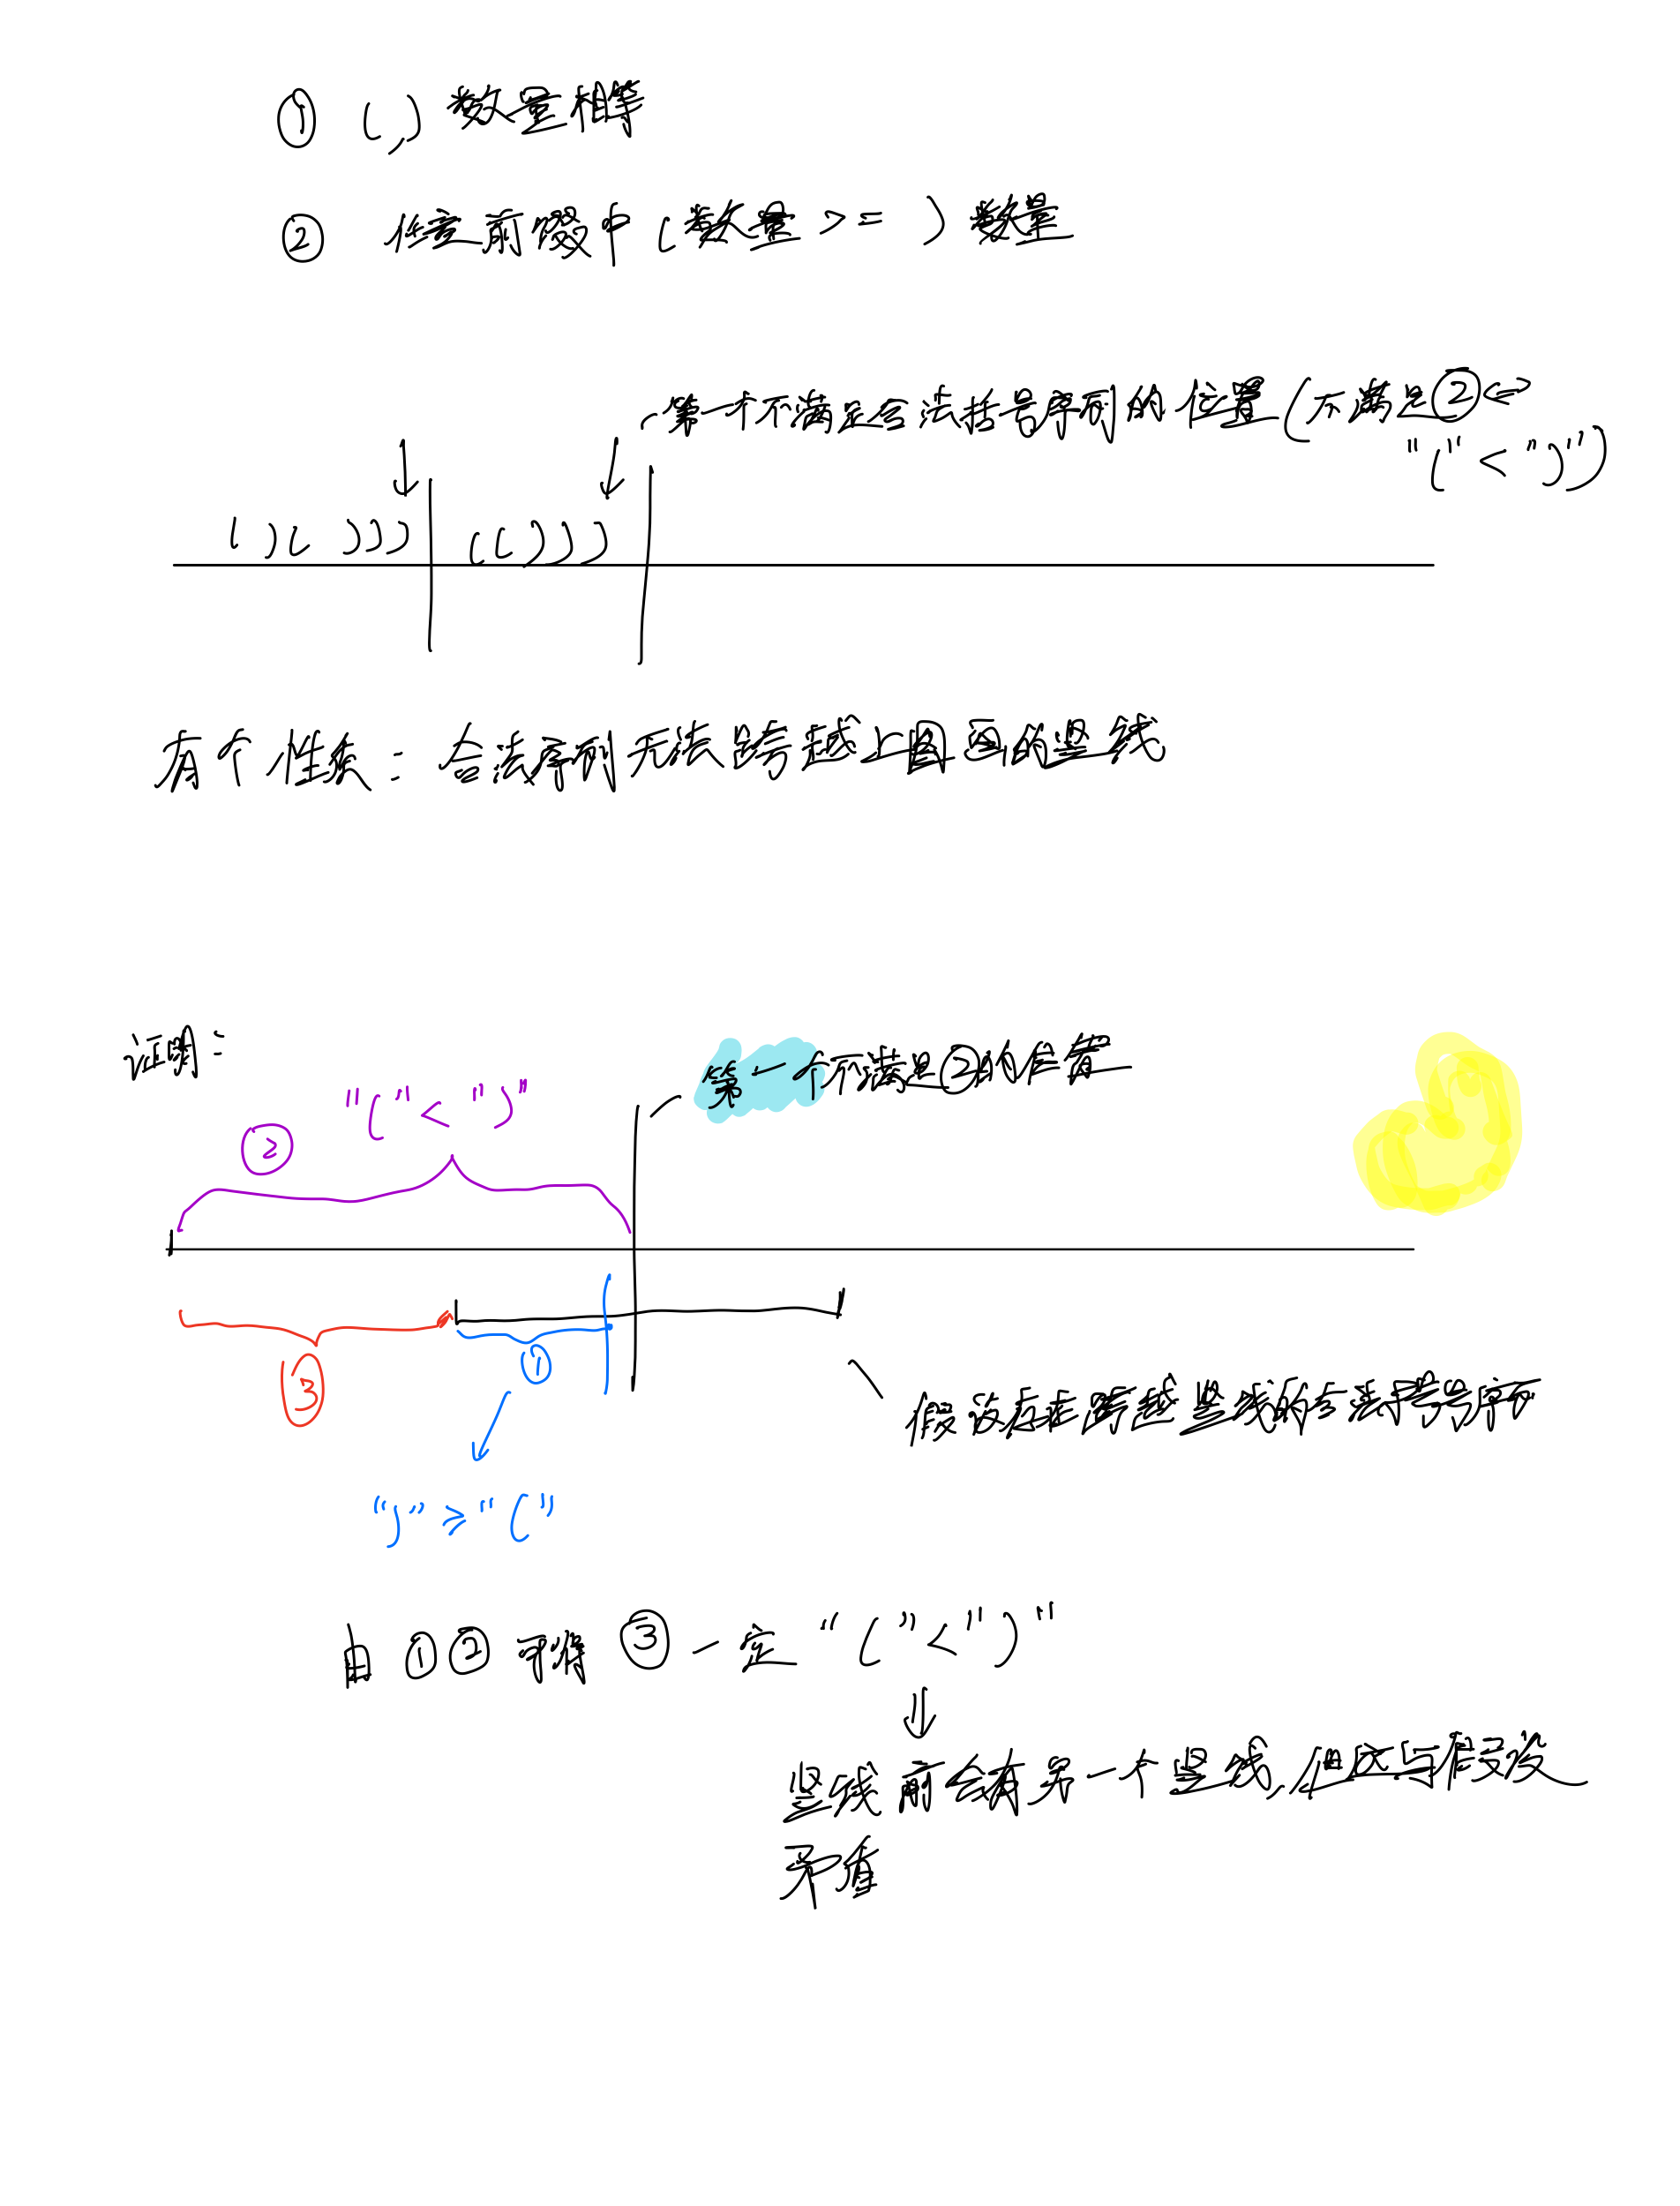 ① (,) 数量相等
② 任意前缀中 ( 数量 >= ) 数量
第一个不满足合法括号序列的位置(不满足②<=>
"(" < ")")
( ) ( ) ) ) ( ( ) ) )
有个性质: 合法序列无法跨越上图画的竖线
证明:
第一个不满足②的位置
② "(" < ")"
③ ①
假设存在跨越竖线的合法括号序列
")" ≥ "("
由 ① ② 可得 ③ 一定 "(" < ")"
⇓
竖线前会有另一个竖线,但这与假设
矛盾